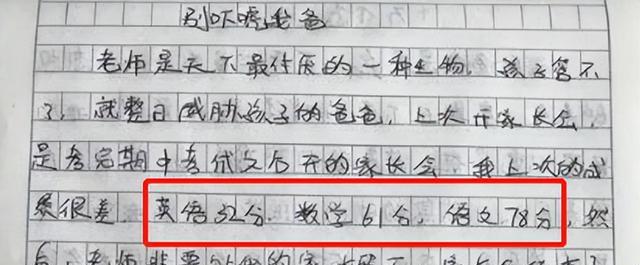 别吓唬我爸
老师是天下最讨厌的一种生物，孩子管不
了，就整日威胁孩子的爸爸，上次开家长会，
是考完期中考试之后开的家长会，我上次的成
绩很差，英语32分，数学61分，语文78分，然
后，老师非要